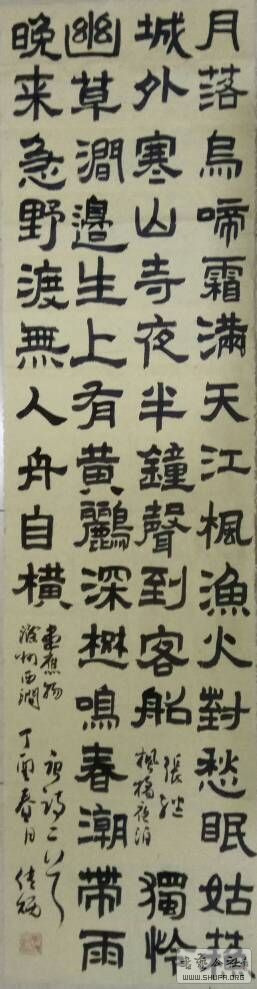 月落烏啼霜滿天江楓漁火對愁眠姑蘇
城外寒山寺夜半鐘聲到客船
張繼
楓橋夜泊
獨怜
幽草澗邊生上有黃鸝深樹鳴春潮帶雨
晚来急野渡無人舟自橫
韋應物
滁州西澗
唐詩二首
丁酉春日